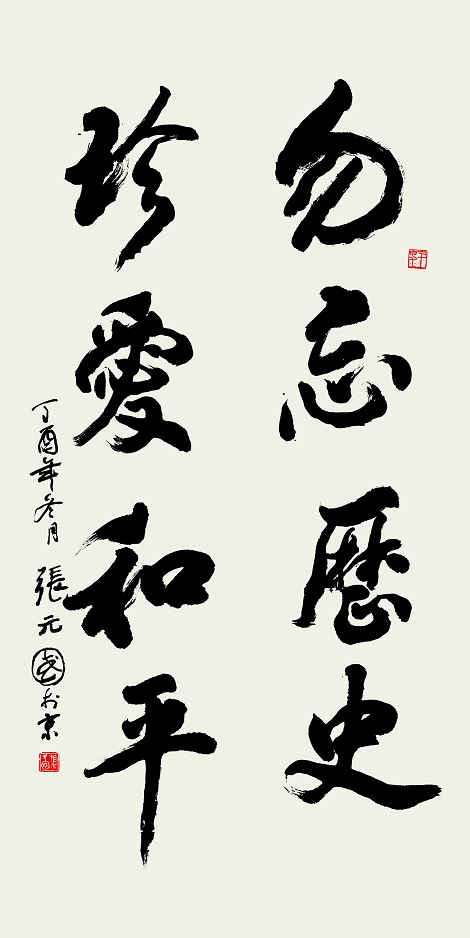 勿忘歷史
珍愛和平
丁酉年冬月 張元
於京